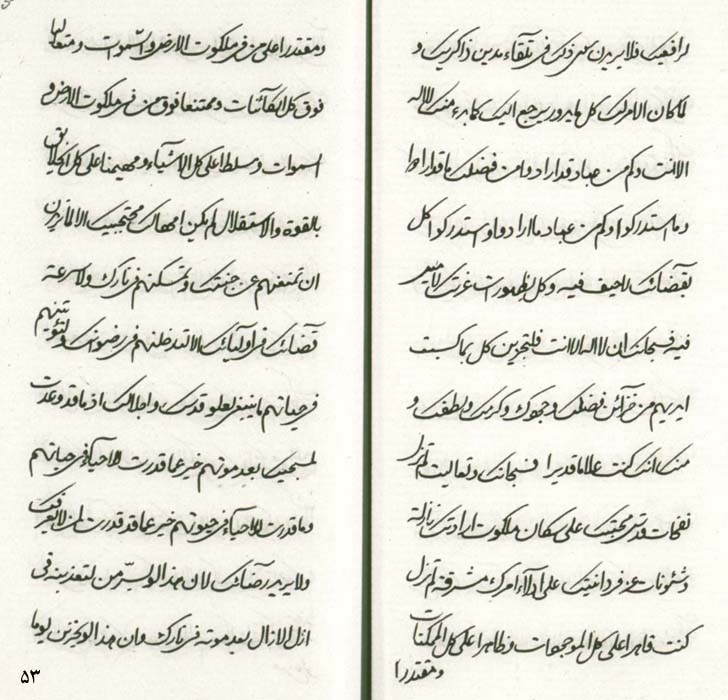 لرافعیک فلا یریدن سوی ذلک فی تلقاء مدین ذاکریک و
لما کان الامر لک کل ما یرد یرجع الیک کما بدء منک لا اله
الا انت و کم من عباد قد ارادوا من فضلک ما قد ارادوا
و ما استدرکوا و کم من عباد ما ارادوا و استدرکوا کل
بقضائک لا حیف فیه و کل بظهورات عزتک لا ریب
فیه فسبحانک ان لا اله الا انت فلتجزین کل بما کسبت
ایدیهم من خزائن فضلک و جودک و کرمک و لطفک و
منک انک کنت علاما قدیرا فسبحانک و تعالیت لم تزل
نفحات قدس محبتک علی سکان ملکوت ارادتک نازلة
و شئونات عز فردانیتک علی امرک مشرقة لم تزل
کنت قاهرا علی کل الموجودات و ظاهرا علی کل الممکنات
و مقتدرا
و مقتدرا علی من فی ملکوت الارض و السموات و متعالیا
فوق کل الکائنات و ممتنعا فوق من فی ملکوت الارض و
السموات و مسلطا علی کل الاشیاء و مهیمنا علی کل الخلایق
بالقوة و الاستقلال لم یکن امهالک محتجبیک الا لما تریدن
ان تمنعهم عن جنتک و تمسکنهم فی نارک و لا سرعة
قضائک فی اولیائک الا لتدخلنهم فی رضوانک و لتؤتینهم
فی حیاتهم ما ینبغی لعلو قدسک و اجلالک اذ ما قد وعدت
لمحبیک بعد موتهم خیر عما قدرت للاحیاء فی حیاتهم
و ما قدرت للاحیاء فی حیوتهم خیر عما قد قدرت لمن لا یعرفک
و لا یرید رضائک لان هذا لو لیسر من لتعذبنه فی
ازل الازال بعد موته فی نارک و ان هذا لو یحزنن یوما
۵۳